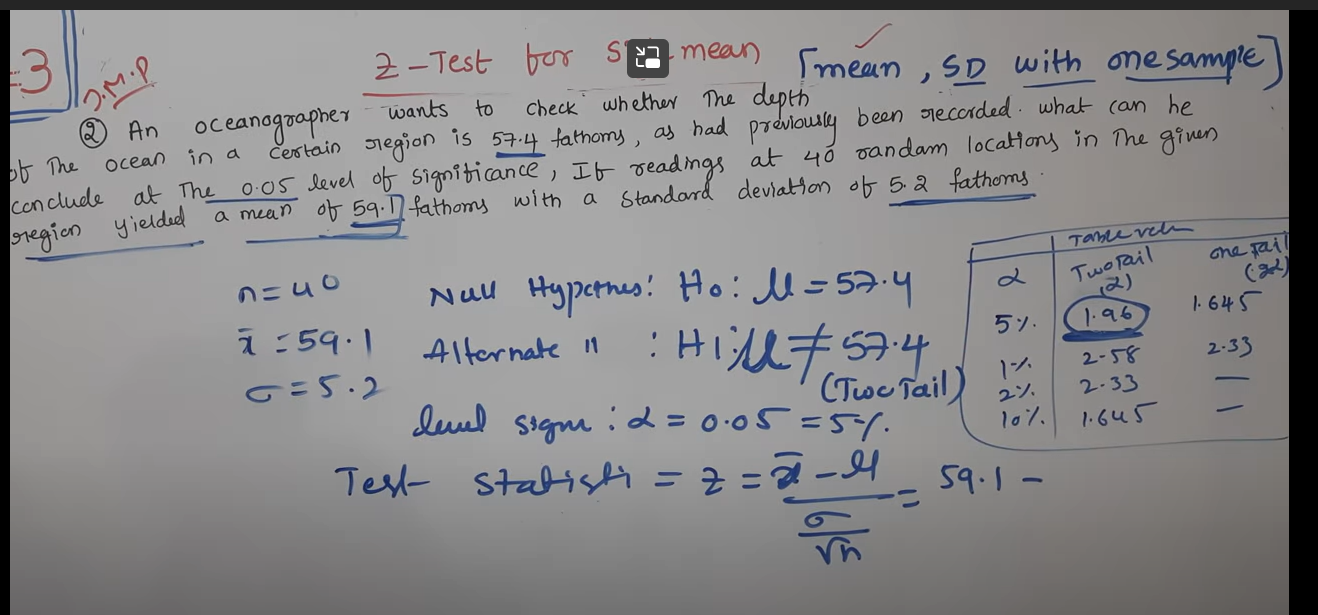 -3
I.M.P
Z-Test for mean [mean, SD with one sample]
② An oceanographer wants to check whether The depth
of The ocean in a certain region is 57.4 fathoms, as had previously been recorded. what can he
conclude at The 0.05 level of significance, If readings at 40 random locations in The given
region yielded a mean of 59.1 fathoms with a standard deviation of 5.2 fathoms.
n=40
x̄ =59.1
σ=5.2
Null : H0: μ=57.4
Alternate " : H1: μ≠57.4
(Two Tail)
: α = 0.05 =5%.
Test = z = x̄-μ / σ/√n = 59.1 -
Table
α Two Tail (2) one Tail
5%. 1.96 1.645
1% 2.58 2.33
2% 2.33 —
10%. 1.645 —